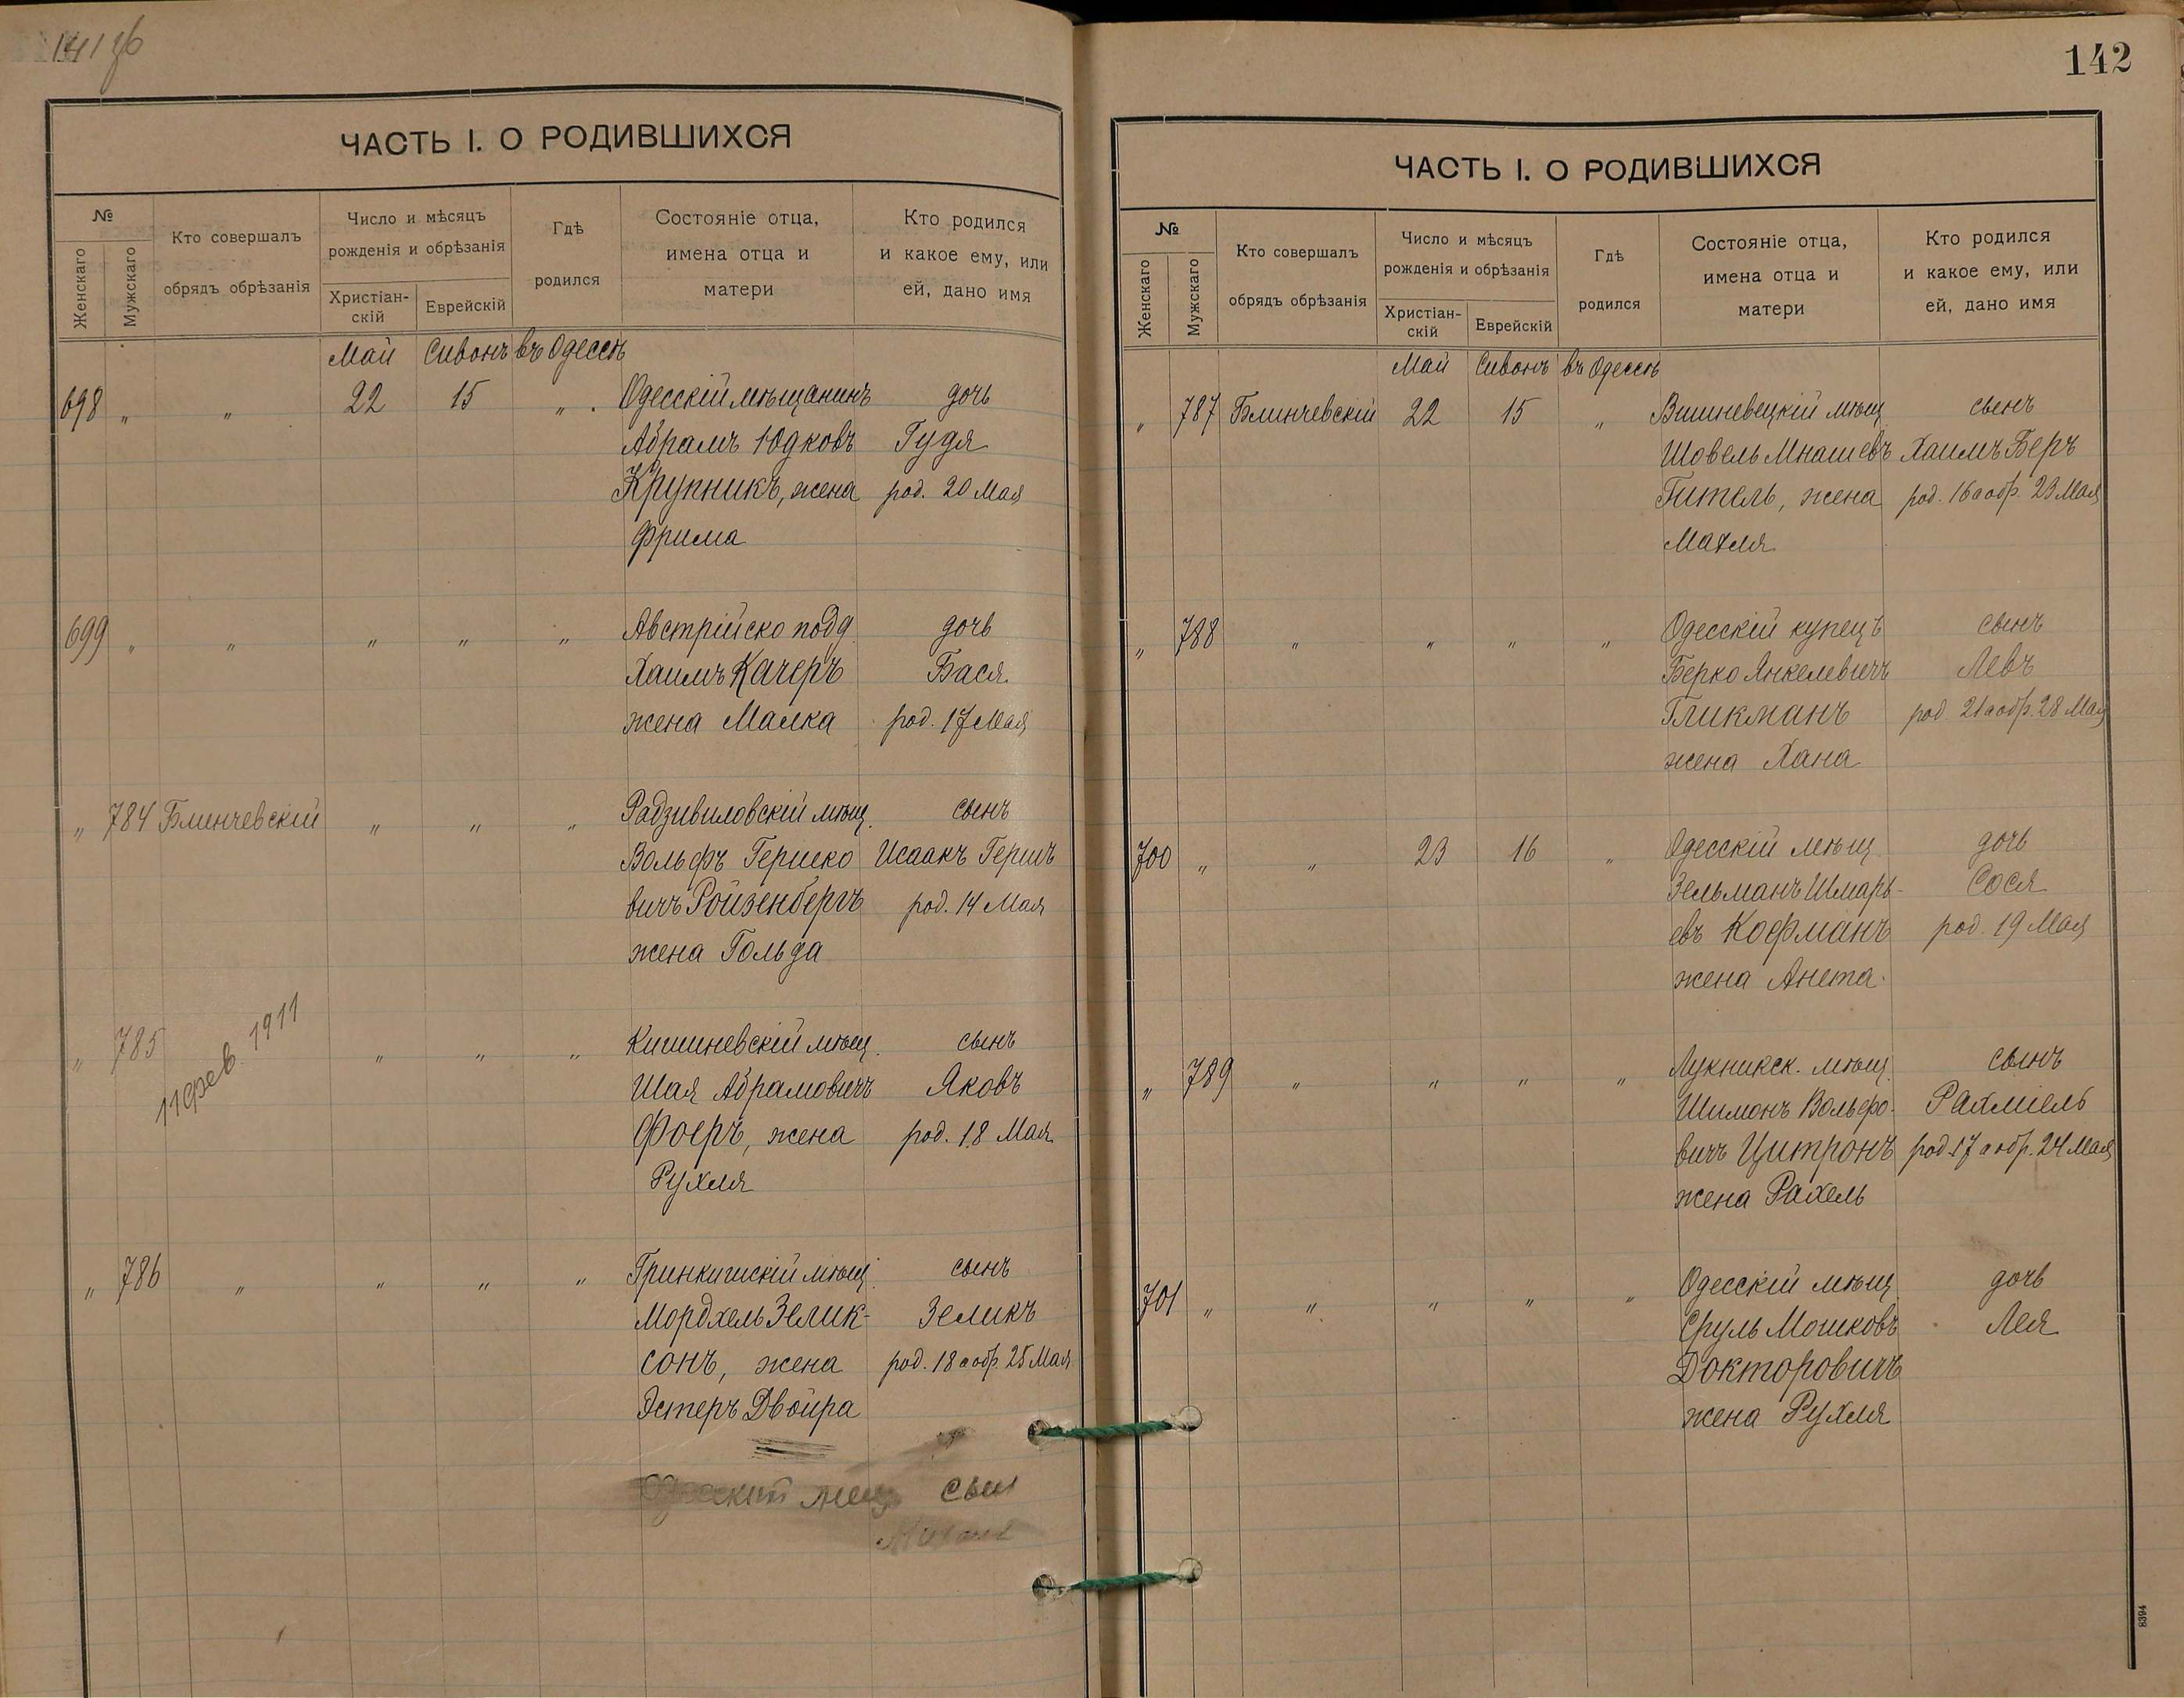 142
ЧАСТЬ I. О РОДИВШИХСЯ
№
Женскаго
Мужскаго
Кто совершалъ
обрядъ обрѣзанія
Число и мѣсяцъ
рожденія и обрѣзанія
Христіан-
скій
Еврейскій
Гдѣ
родился
Состояніе отца,
имена отца и
матери
Кто родился
и какое ему, или
ей, дано имя
Май Сивонъ въ Одессѣ
698 „ „ 22 15 „ Одесскій мѣщанинъ дочь
Абрамъ Юдковъ Гудя
Крупникъ, жена род. 20 Мая
Фрима
699 „ „ „ „ „ Австрійско подд. дочь
Хаимъ Качеръ Бася
жена Малка род. 17 Мая
„ 784 Блинчевскій „ „ „ Радзивиловскій мѣщ. сынъ
Вольфъ Гершко Исаакъ Гершъ
вичъ Ройзенбергъ род. 14 Мая
жена Гольда
„ 785 11 фев. 1911 „ „ „ Кишиневскій мѣщ. сынъ
Шая Абрамовичъ Яковъ
Фоеръ, жена род. 18 Мая
Рухля
„ 786 „ „ „ „ Гринкишскій мѣщ. сынъ
Мордхель Зелик- Зеликъ
сонъ, жена род. 18 а обр. 25 Мая
Эстеръ Двойра
ЧАСТЬ I. О РОДИВШИХСЯ
№
Женскаго
Мужскаго
Кто совершалъ
обрядъ обрѣзанія
Число и мѣсяцъ
рожденія и обрѣзанія
Христіан-
скій
Еврейскій
Гдѣ
родился
Состояніе отца,
имена отца и
матери
Кто родился
и какое ему, или
ей, дано имя
Май Сивонъ въ Одессѣ
„ 787 Блинчевскій 22 15 „ Вишневецкій мѣщ сынъ
Шовель Мнашевъ Хаимъ Беръ
Гитель, жена род. 16 а обр. 23 Мая
Махля
„ 788 „ „ „ „ Одесскій купецъ сынъ
Берко Янкелевичъ Левъ
Гликманъ род 21 а обр. 28 Мая
жена Хана
700 „ „ 23 16 „ Одесскій мѣщ дочь
Зельманъ Шмарь- Сося
евъ Кофманъ род. 19 Мая
жена Анета.
„ 789 „ „ „ „ Лукникск. мѣщ. сынъ
Шимонъ Вольфо- Рахміель
вичъ Цитронъ род. 17 а обр. 24 Мая
жена Рахель
701 „ „ „ „ „ Одесскій мѣщ дочь
Сруль Мошковъ Лея
Докторовичъ
жена Рухля
8394